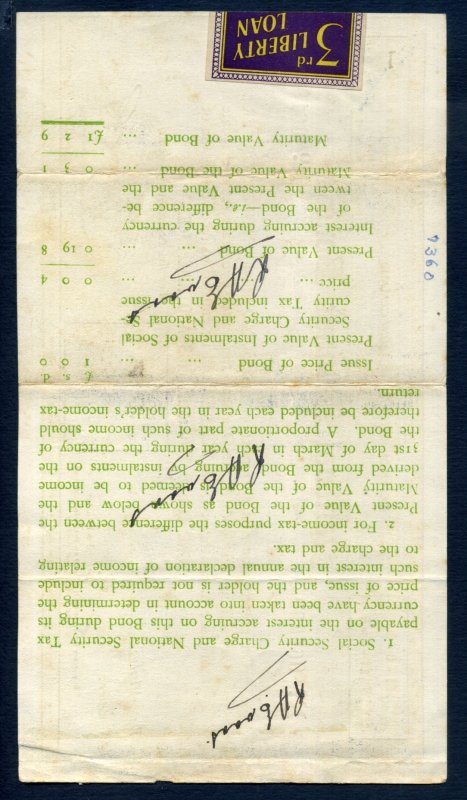 1. Social Security Charge and National Security Tax
payable on the interest accruing on this Bond during its
currency have been taken into account in determining the
price of issue, and the holder is not required to include
such interest in the annual declaration of income relating
to the charge and tax.
2. For income-tax purposes the difference between the
Present Value of the Bond as shown below and the
Maturity Value of the Bond is deemed to be income
derived from the Bond accruing by instalments on the
31st day of March in each year during the currency of
the Bond. A proportionate part of such income should
therefore be included each year in the holder's income-tax
return.
£ s. d.
Issue Price of Bond ... ... 1 0 0
Present Value of Instalments of Social
Security Charge and National Se-
curity Tax included in the issue
price ... ... ... ... 0 0 4
Present Value of Bond ... ... 0 19 8
Interest accruing during the currency
of the Bond—i.e., difference be-
tween the Present Value and the
Maturity Value of the Bond ... 0 3 1
Maturity Value of Bond ... £1 2 9
3rd
LIBERTY
LOAN
R H Evans
R H Evans
R H Evans